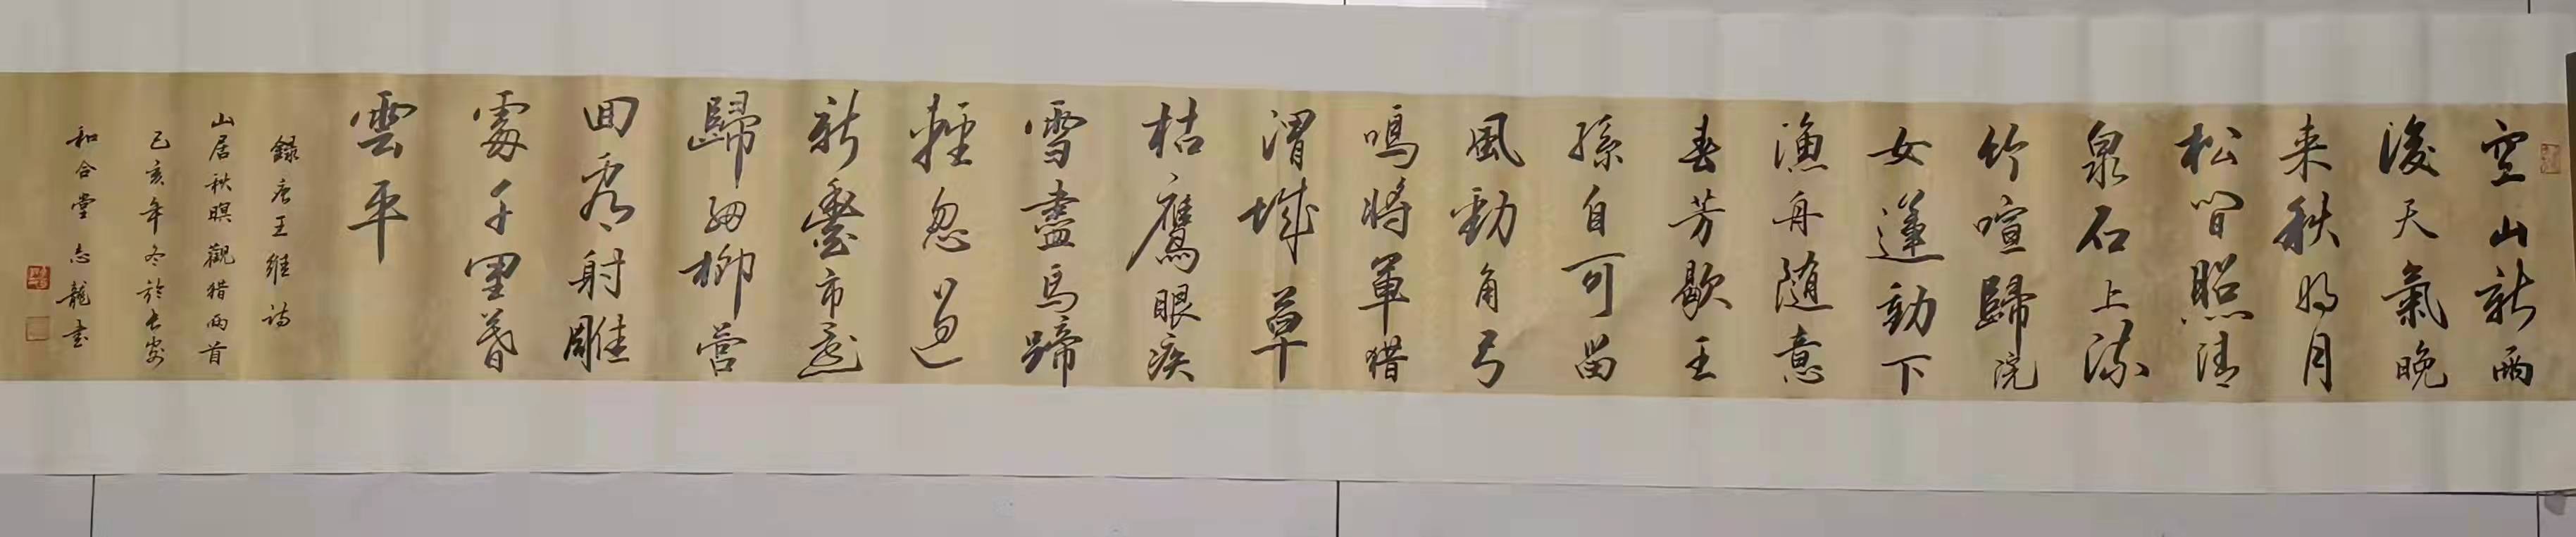 空山新雨
後天氣晚
来秋明月
松間照清
泉石上流
竹喧歸浣
女蓮動下
漁舟随意
春芳歇王
孫自可留
風勁角弓
鳴將軍猎
渭城草
枯鷹眼疾
雪盡馬蹄
輕忽過
新豐市還
歸細柳營
回看射雕
處千里暮
雲平
録唐王維詩
山居秋暝觀猎兩首
己亥年冬於長安
和合堂志龍書